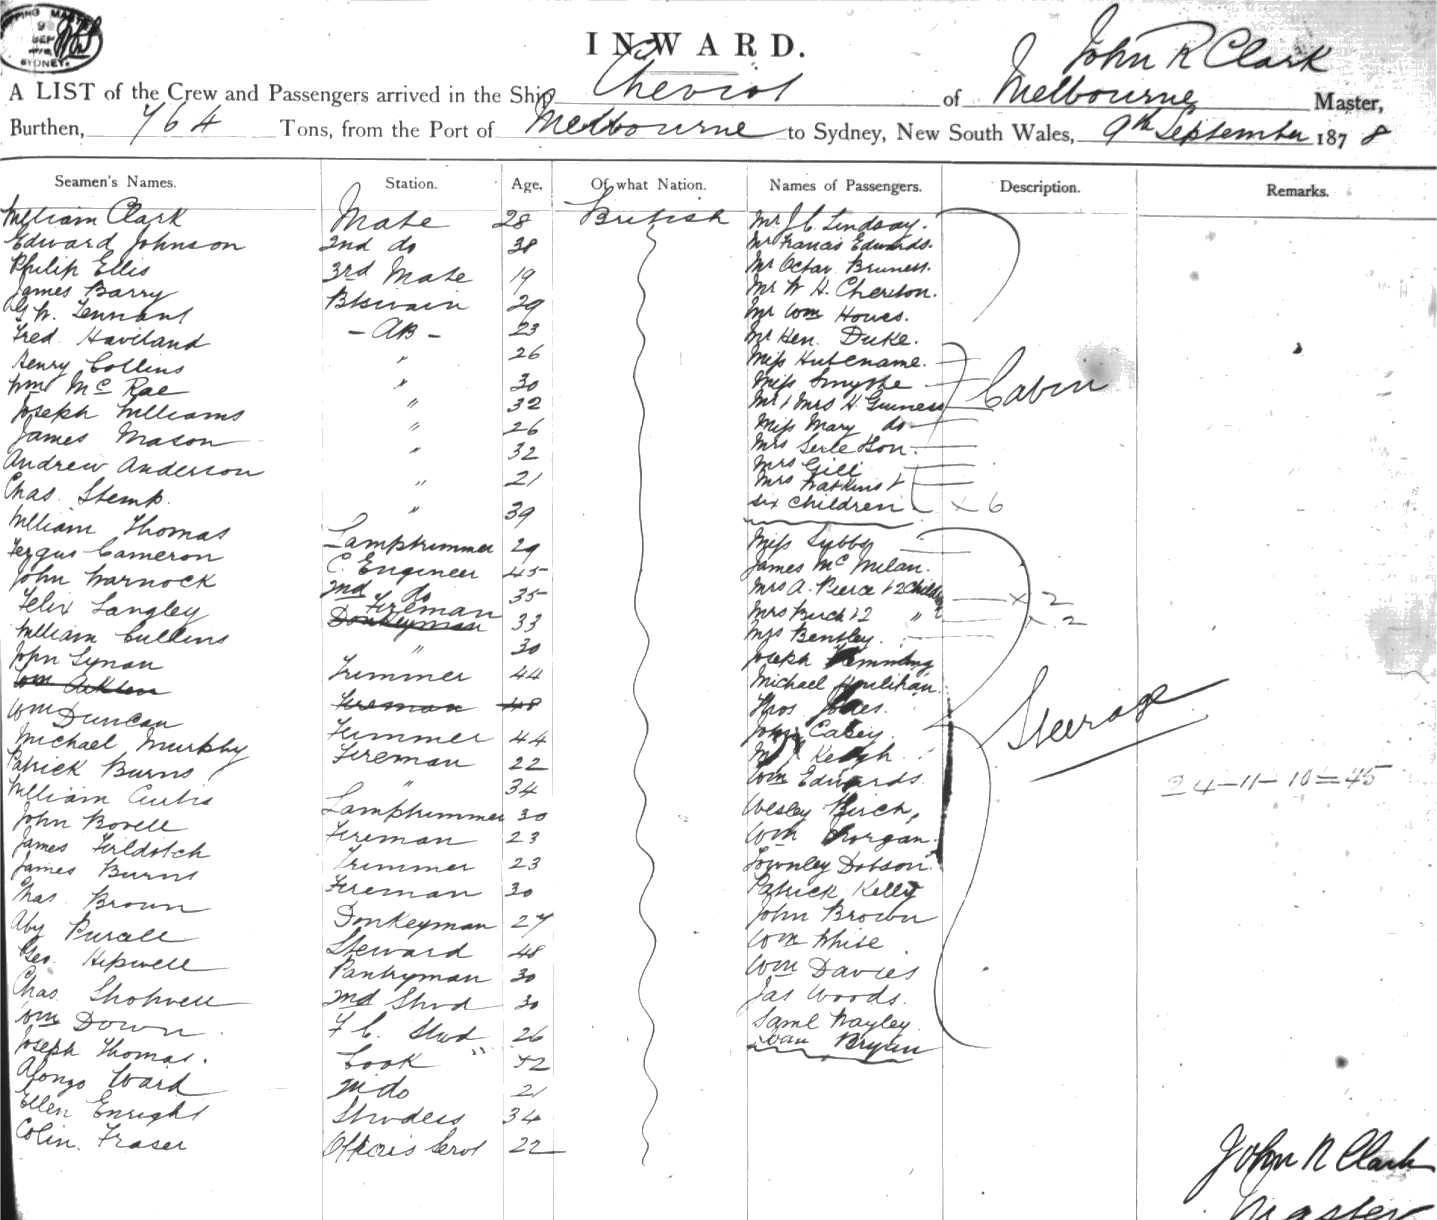 SHIPPING MASTER
9
SEP
SYDNEY
INWARD.
John R Clark
A LIST of the Crew and Passengers arrived in the Ship Cheviot of Melbourne Master,
Burthen, 764 Tons, from the Port of Melbourne to Sydney, New South Wales, 9th September 1878
Seamen's Names. Station. Age. Of what Nation. Names of Passengers. Description. Remarks.
William Clark Mate 28 British Mr J C Lindsay.
Edward Johnson 2nd do 38 Mr Francis Edwards.
Philip Ellis 3rd Mate 19 Mr Octav
James Barry Btswain 29 Mr W H.
G W. Tennant - AB - 23 Mr Wm Howes.
Fred Haviland " 26 Mr Hen. Duke.
Henry Collins " 30 Miss
Wm McRae " 32 Miss Smythe
Joseph Williams " 26 Mr & Mrs H. Guiness Cabin
James Mason " 32 Miss Mary do
Andrew Anderson " 21 Mrs
Chas. Stemp. " 39 Mrs Gill
William Thomas Lamptrimmer 29 Mrs Watkins &
Fergus Cameron C. Engineer 45 six children x 6
John Warnock 2nd do 35 Miss
Felix Langley Fireman Donkeyman 33 James McMilan.
William Cullens " 30 Mrs A. Pierce & 2 Childn x 2
John Lynan Trimmer 44 Mrs Burch & 2 " x 2
Wm Fireman 48 Mrs Bentley.
Wm Duncan Trimmer 44 Joseph Flemming
Michael Murphy Fireman 22 Michael Houlihan.
Patrick Burns " 34 Thos Jones.
William Curtis Lamptrimmer 30 John Casey.
John Bovell Fireman 23 Keogh
James Trimmer 23 Wm Edwards.
James Burns Fireman 30 Wesley Birch,
Chas. Brown Donkeyman 27 Wm Morgan.
Purcell Steward 48 Townley Dobson.
Geo. Hipwell Pantryman 30 Patrick Kelly
Chas. Shotwell 2nd Stwd 30 John Brown
Wm Down F. C. Stwd 26 Wm White
Joseph Thomas. Cook 52 Wm Davies
Alonzo Ward 2nd do 21 Jas Woods.
Ellen Enright Stwdess 34 Saml Wayley.
Colin Fraser Officers Servt 22 Bryan
Steerage
24-11-10=45
John R Clark
Master